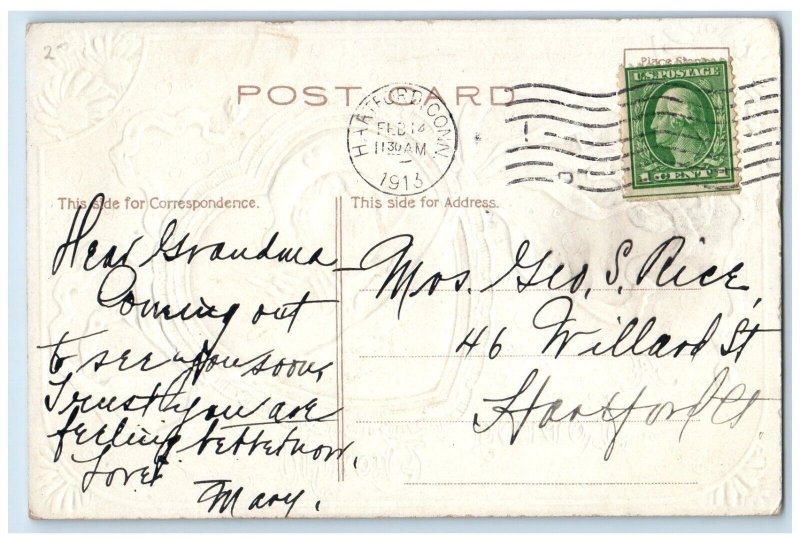 2
Place Stamp
U.S. POSTAGE
1 CENT 1
POST CARD
HARTFORD, CONN.
FEB 14
11 30 AM
1913
This side for Correspondence.
This side for Address.
Dear Grandma –
Coming out
to see you soon,
Trust you are
feeling better now.
Love
Mary.
Mrs. Geo. S. Rice,
46 Willard St
Hartford Ct